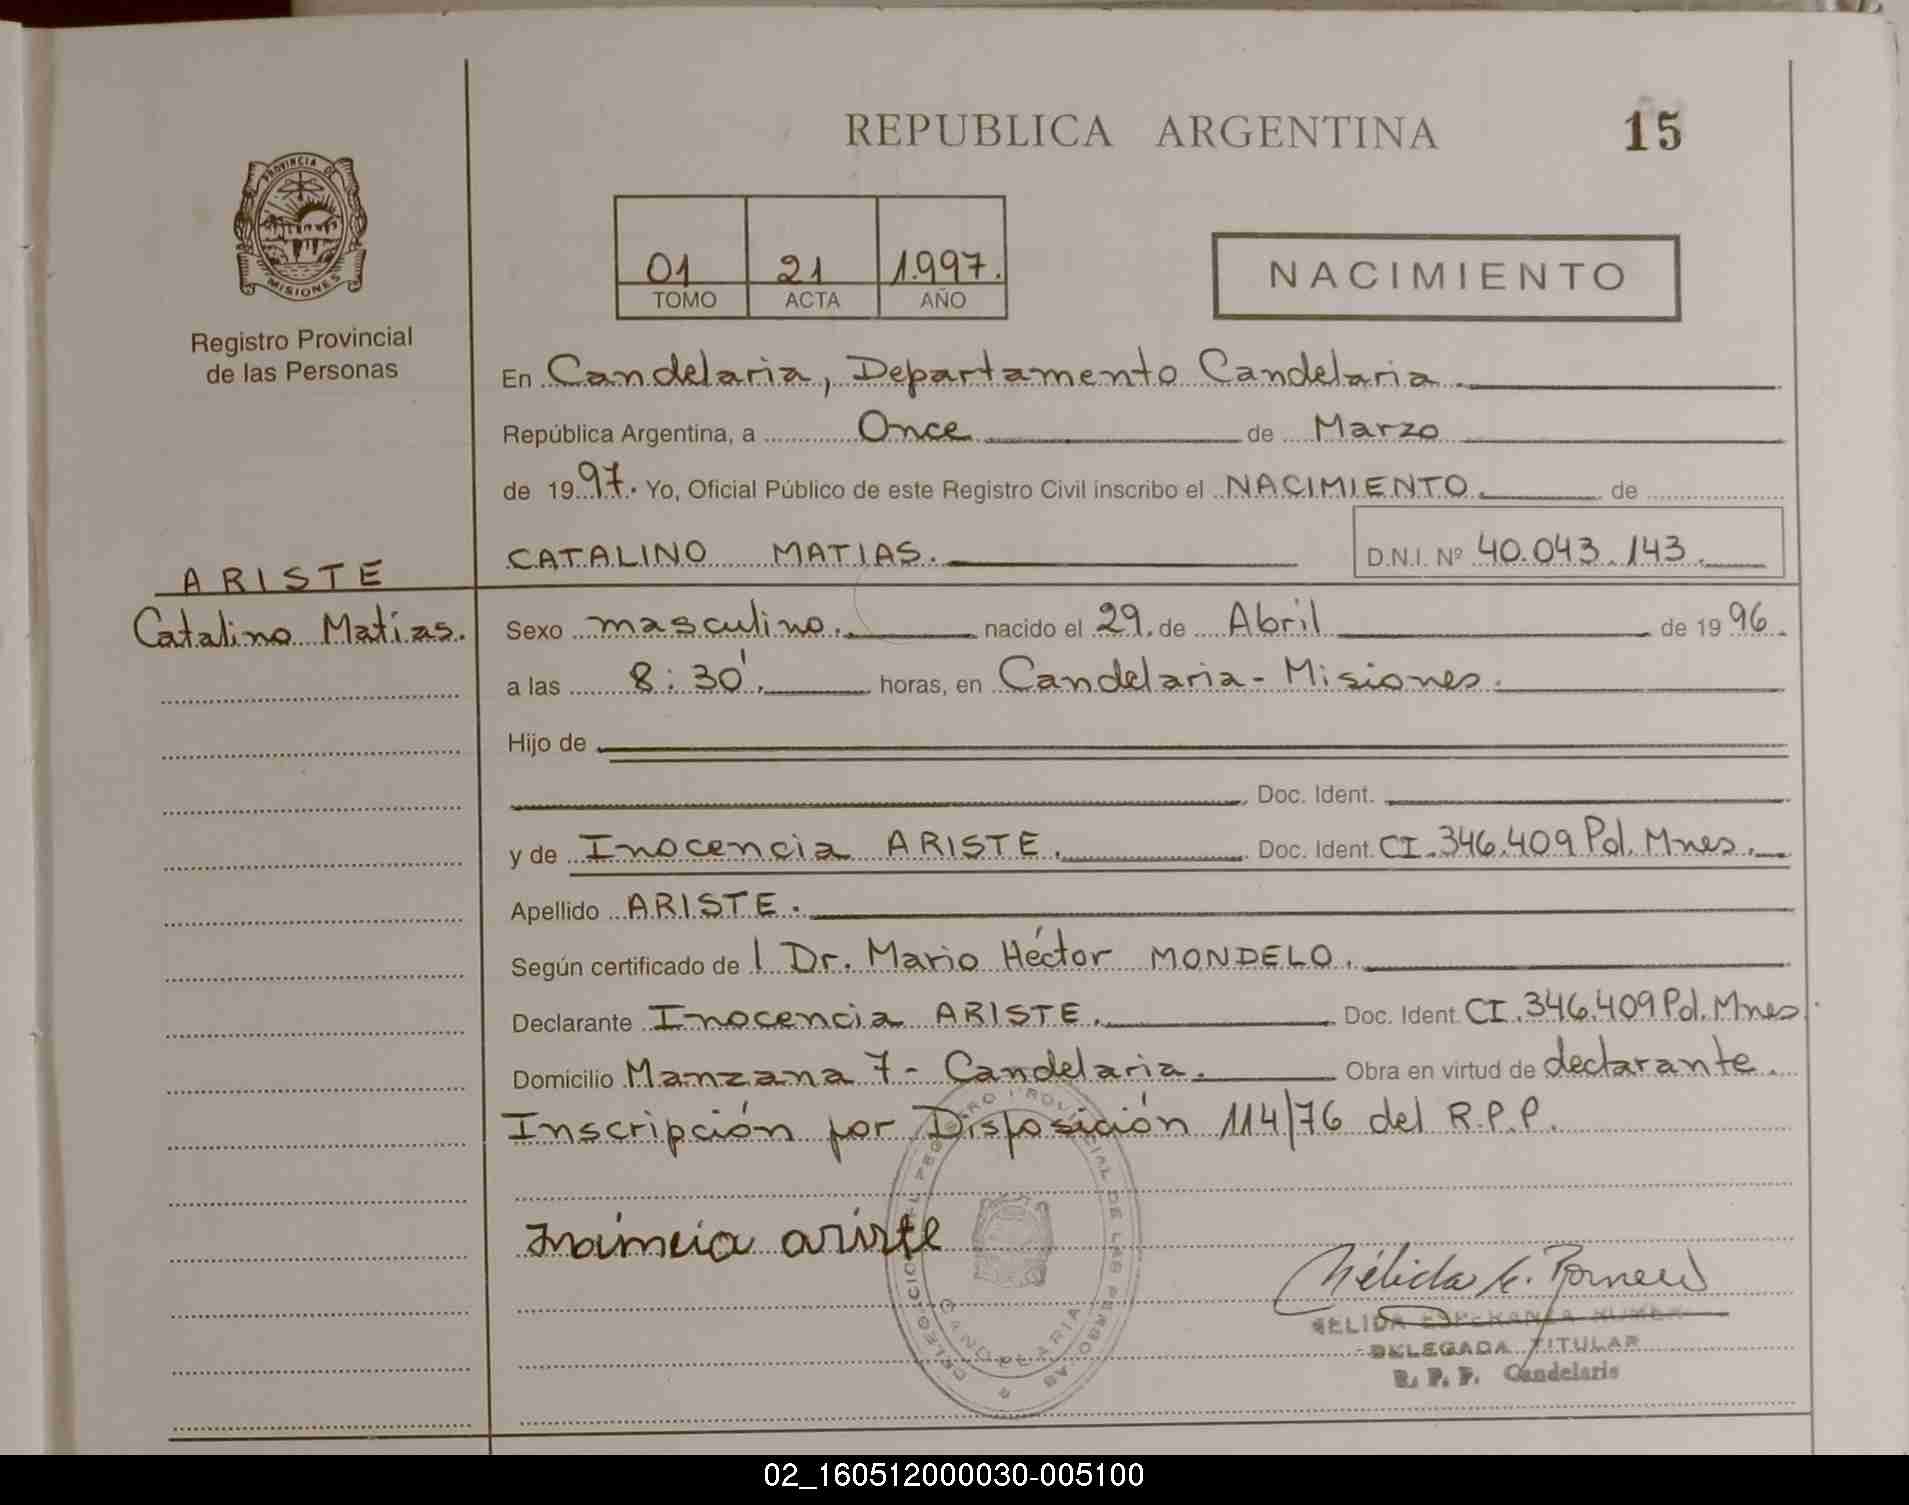 REPUBLICA ARGENTINA
15
PROVINCIA DE
MISIONES
Registro Provincial
de las Personas
01 21 1.997.
TOMO ACTA AÑO
NACIMIENTO
En Candelaria, Departamento Candelaria
República Argentina, a Once de Marzo
de 1997. Yo, Oficial Público de este Registro Civil inscribo el NACIMIENTO de
CATALINO MATIAS.
D.N.I. Nº 40.043.143.
ARISTE
Catalino Matías.
Sexo masculino. nacido el 29. de Abril de 1996.
a las 8:30'. horas, en Candelaria - Misiones.
Hijo de
Doc. Ident.
y de Inocencia ARISTE. Doc. Ident. CI.346.409 Pol. Mnes.
Apellido ARISTE.
Según certificado de l Dr. Mario Héctor MONDELO.
Declarante Inocencia ARISTE. Doc. Ident. CI.346.409 Pol. Mnes.
Domicilio Manzana 7 - Candelaria. Obra en virtud de declarante.
Inscripción por Disposición 114/76 del R.P.P.
ariste
REGISTRO PROVINCIAL DE LAS PERSONAS
CANDELARIA
Nélida E.
NELIDA ESPERANZA
DELEGADA TITULAR
R. P. P. Candelaria
02_160512000030-005100